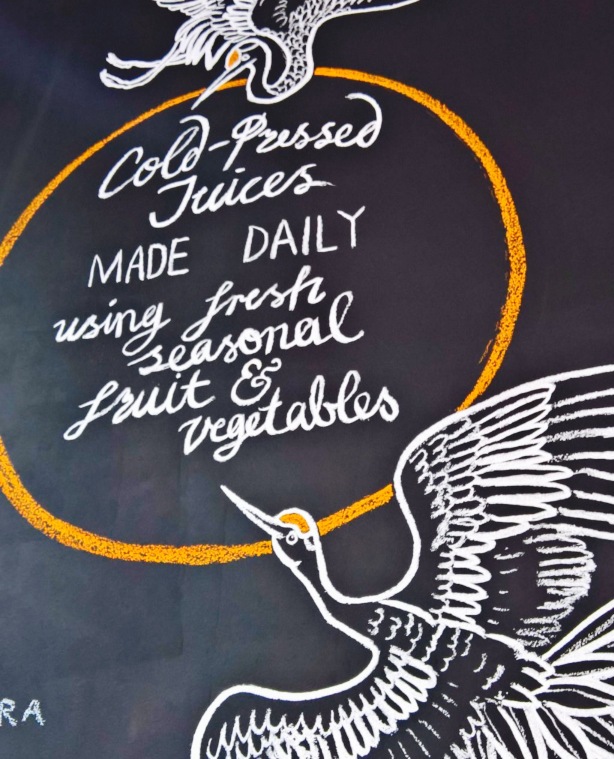 Cold-Pressed
Juices
MADE DAILY
using fresh
seasonal
fruit &
vegetables
RA